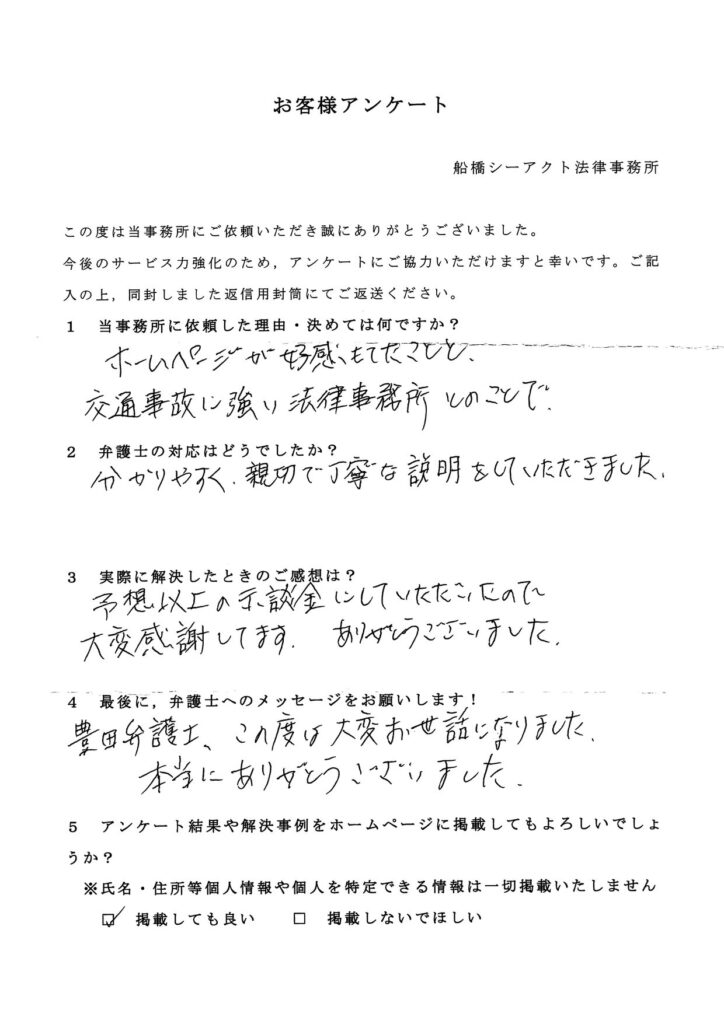 お客様アンケート
船橋シーアクト法律事務所
この度は当事務所にご依頼いただき誠にありがとうございました。
今後のサービス力強化のため，アンケートにご協力いただけますと幸いです。ご記
入の上，同封しました返信用封筒にてご返送ください。
1　当事務所に依頼した理由・決めては何ですか？
ホームページが好感もてたことと、
交通事故に強い法律事務所とのことで．
2　弁護士の対応はどうでしたか？
分かりやすく、親切で丁寧な説明をしていただきました．
3　実際に解決したときのご感想は？
予想以上の示談金にしていただいたので
大変感謝してます．　ありがとうございました．
4　最後に，弁護士へのメッセージをお願いします！
豊田弁護士、この度は大変お世話になりました．
本当にありがとうございました．
5　アンケート結果や解決事例をホームページに掲載してもよろしいでしょ
うか？
※氏名・住所等個人情報や個人を特定できる情報は一切掲載いたしません
☑　掲載しても良い　　□　掲載しないでほしい